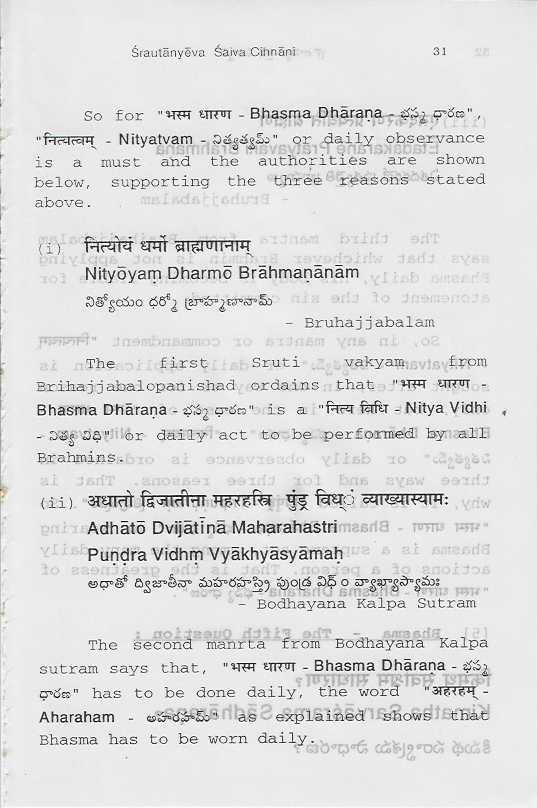 Śrautānyēva Śaiva Cihnāni 31
So for "भस्म धारण - Bhasma Dhāraṇa - భస్మ ధారణ",
"नित्यत्वम् - Nityatvam - నిత్యత్వమ్" or daily observance
is a must and the authorities are shown
below, supporting the three reasons stated
above.
(i) नित्योयं धर्मो ब्राह्मणानाम्
Nityōyam Dharmō Brāhmaṇānām
నిత్యోయం ధర్మో బ్రాహ్మణానామ్
- Bruhajjabalam
The first Sruti vakyam from
Brihajjabalopanishad ordains that "भस्म धारण -
Bhasma Dhāraṇa - భస్మ ధారణ" is a "नित्य विधि - Nitya Vidhi
- నిత్య విధి" or daily act to be performed by all
Brahmins.
(ii) अधातो द्विजातीना महरहस्त्रि पुंड्र विध्ं व्याख्यास्यामः
Adhātō Dvijātīnā Maharahastri
Puṇḍra Vidhṃ Vyākhyāsyāmaḥ
అధాతో ద్విజాతీనా మహరహస్త్రి పుండ్ర విధ్ం వ్యాఖ్యాస్యామః
- Bodhayana Kalpa Sutram
The second manrta from Bodhayana Kalpa
sutram says that, "भस्म धारण - Bhasma Dhāraṇa - భస్మ
ధారణ" has to be done daily, the word "अहरहम् -
Aharaham - అహరహమ్" as explained shows that
Bhasma has to be worn daily.